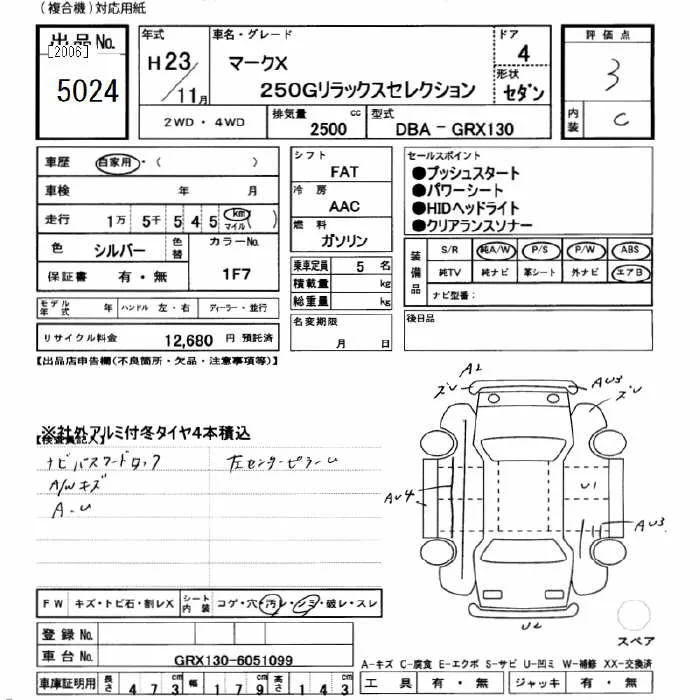 (複合機)対応用紙
出品No.
[2006]
5024
年式
H23/11月
車名・グレード
マークX
250Gリラックスセレクション
ドア
4
形状
セダン
評価点
3
内装
C
2WD・4WD
排気量 2500 cc
型式 DBA-GRX130
車歴 自家用・( )
車検 年 月
走行 1万 5千 5 4 5 (km マイル)
色 シルバー 色替 カラーNo. 1F7
保証書 有・無
モデル年式 年 ハンドル 左・右 ディーラー・並行
リサイクル料金 12,680 円 預託済
シフト FAT
冷房 AAC
燃料 ガソリン
乗車定員 5 名
積載量 kg
総重量 kg
名変期限
月 日
セールスポイント
●プッシュスタート
●パワーシート
●HIDヘッドライト
●クリアランスソナー
装備品
S/R 純A/W P/S P/W ABS
純TV 純ナビ 革シート 外ナビ エアB
ナビ型番:
後日品
【出品店申告欄(不良箇所・欠品・注意事項等)】
※社外アルミ付冬タイヤ4本積込
【検査員記入】
ナビパスワードロック 左センターピラーU
A/Wキズ
A・U
A2
ズU
AU3
ズU
AU4
U1
AU3
U2
スペア
FW キズ・トビ石・割レX シート内装 コゲ・穴・汚レ・シミ・破レ・スレ
登録No.
車台No. GRX130-6051099
車庫証明用 長さ 473 幅 179 高さ 143
A-キズ C-腐食 E-エクボ S-サビ U-凹ミ W-補修 XX-交換済
工具 有・無 ジャッキ 有・無